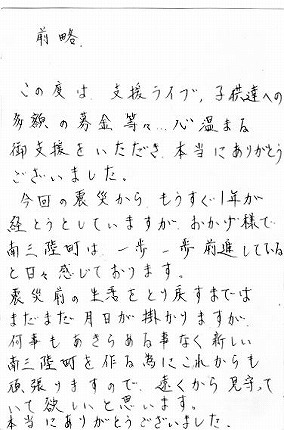 前略、
この度は、支援ライブ、子供達への
多額の募金等々…心温まる
御支援をいただき、本当にありがとう
ございました。
今回の震災から、もうすぐ1年が
経とうとしていますが、おかげ様で
南三陸町は、一歩一歩前進している
と日々感じております。
震災前の生活をとり戻すまでは
まだまだ月日が掛かりますが、
何事もあきらめる事なく新しい
南三陸町を作る為にこれからも
頑張りますので、遠くから見守って
いて欲しいと思います。
本当にありがとうございました。